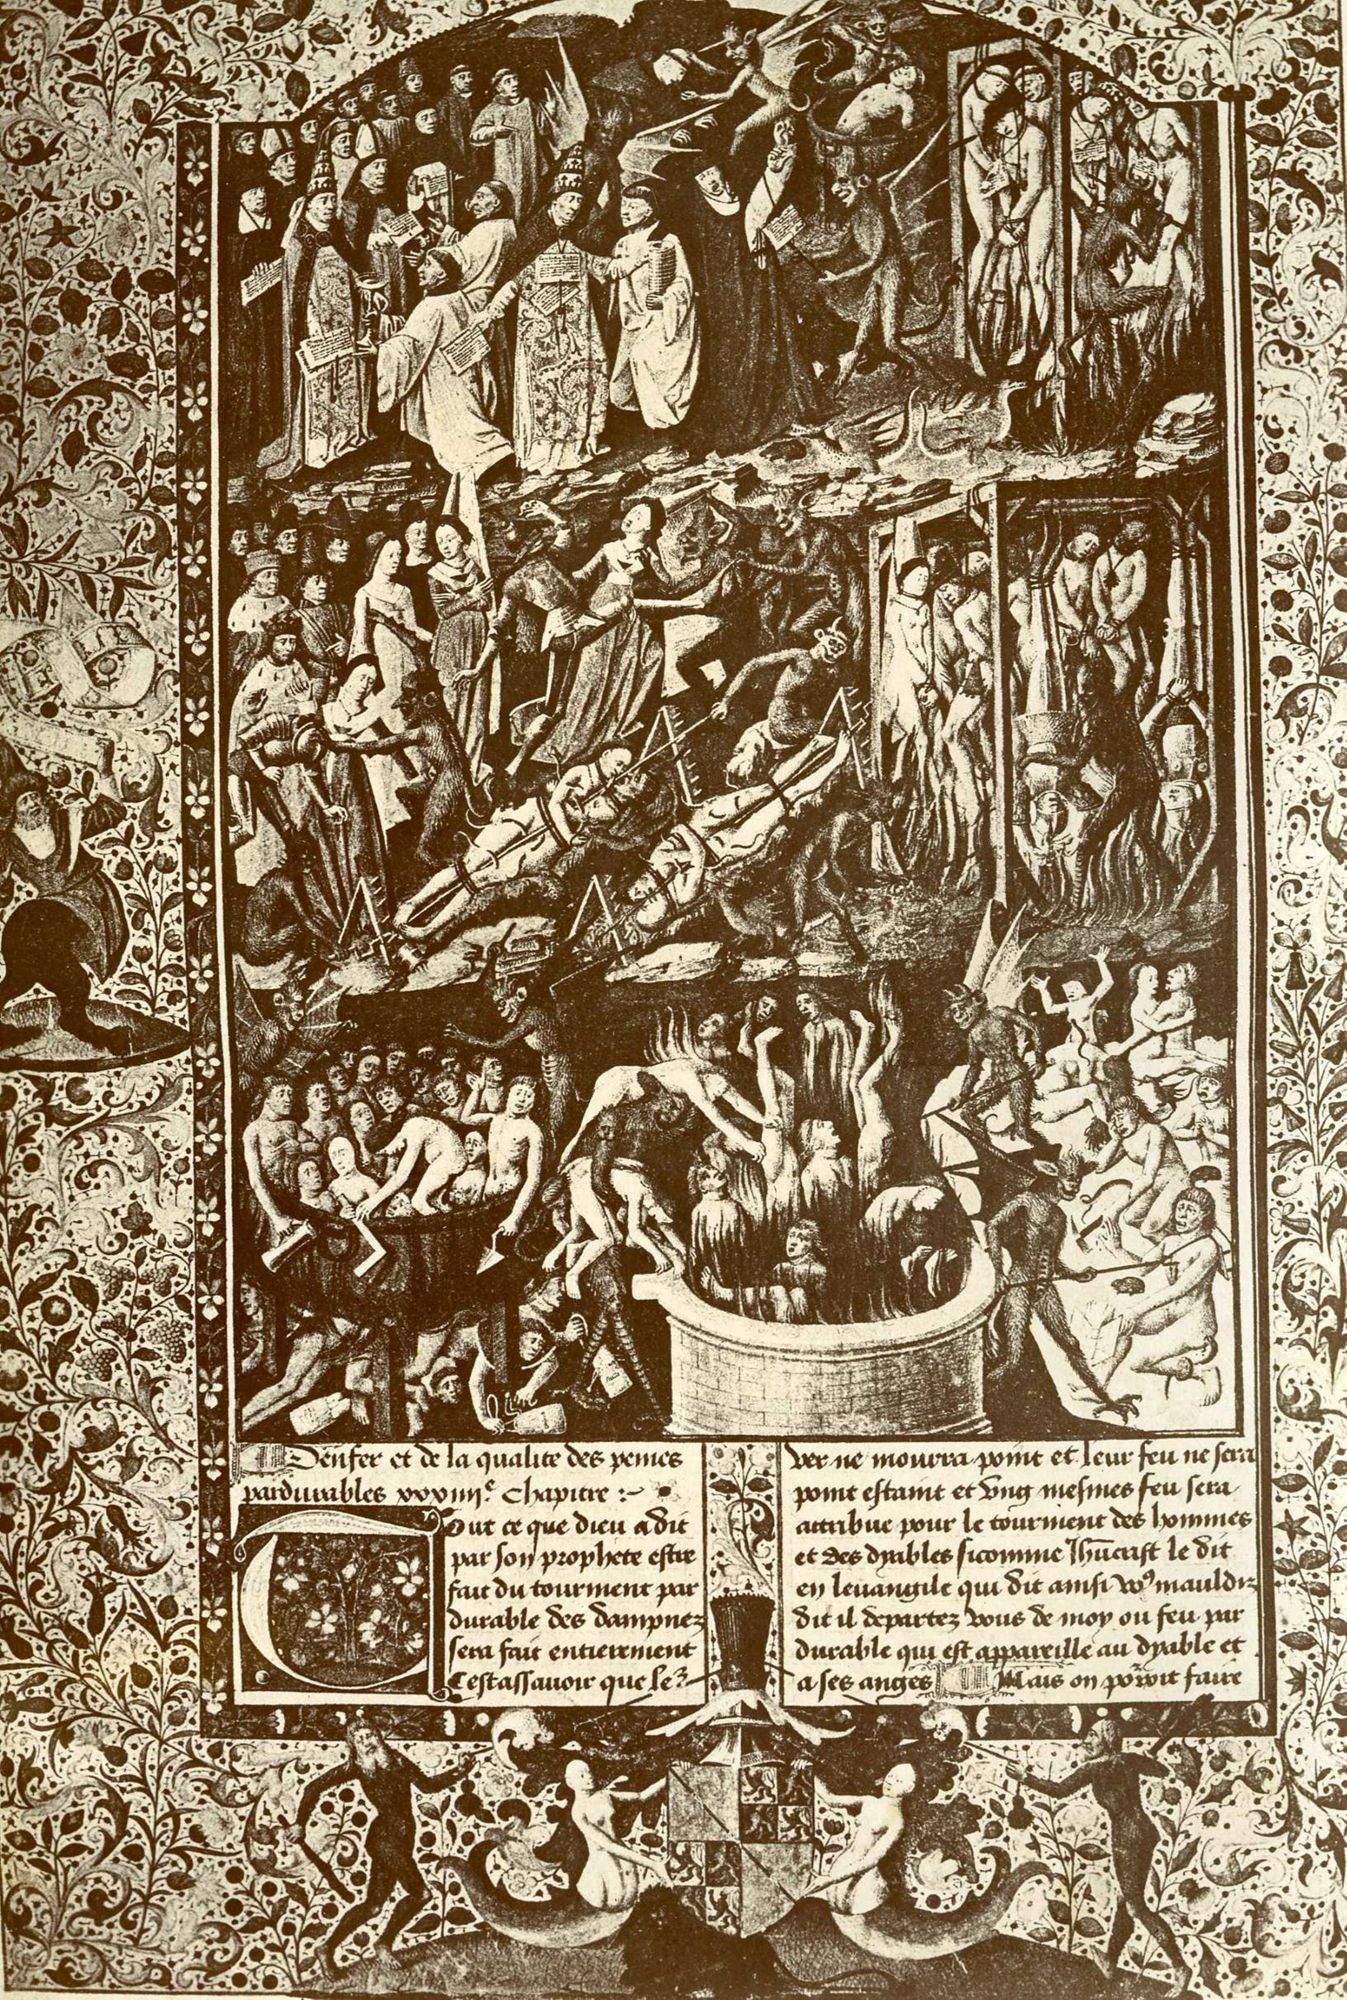 Denfer et de la qualite des peines
pardurables xxxiiiie. chapitre :~
Tout ce que dieu a dit
par son prophete estre
fait du tourment par
durable des dampnez
sera fait entierement
Cestassauoir que le
ver ne mourra point et leur feu ne sera
point estaint et vng mesmes feu sera
attribue pour le tourment des hommes
et des dyables sicomme Jhucrist le dit
en leuangile qui dit ainsi vo9 mauldiz
dit il departez vous de moy ou feu par
durable qui est appareille au dyable et
a ses anges Mais on porroit faire